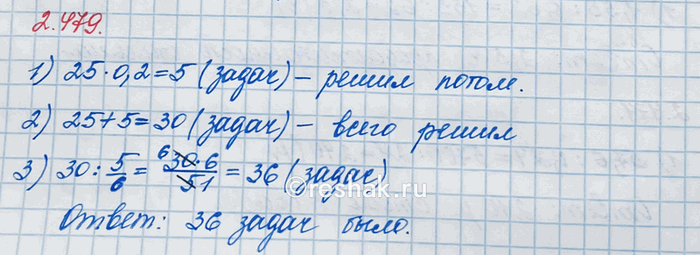 2.479.
1) 25 · 0,2 = 5 (задач) – решил потом.
2) 25 + 5 = 30 (задач) – всего решил
3) 30 : 5/6 = 30 · 6 / 5 1 = 36 (задас)
Ответ: 36 задач было.
©reshak.ru